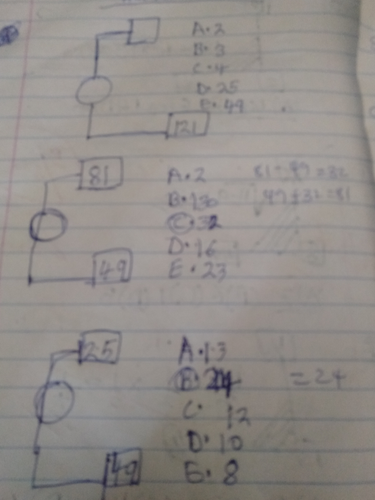 A. 2
B. 3
C. 4
D. 25
E. 49
121
81
A. 2 81 - 49 = 32
B. 130 49 + 32 = 81
C. 32
D. 16
E. 23
49
25
A. 13
B. 24 = 24
C. 12
D. 10
E. 8
49